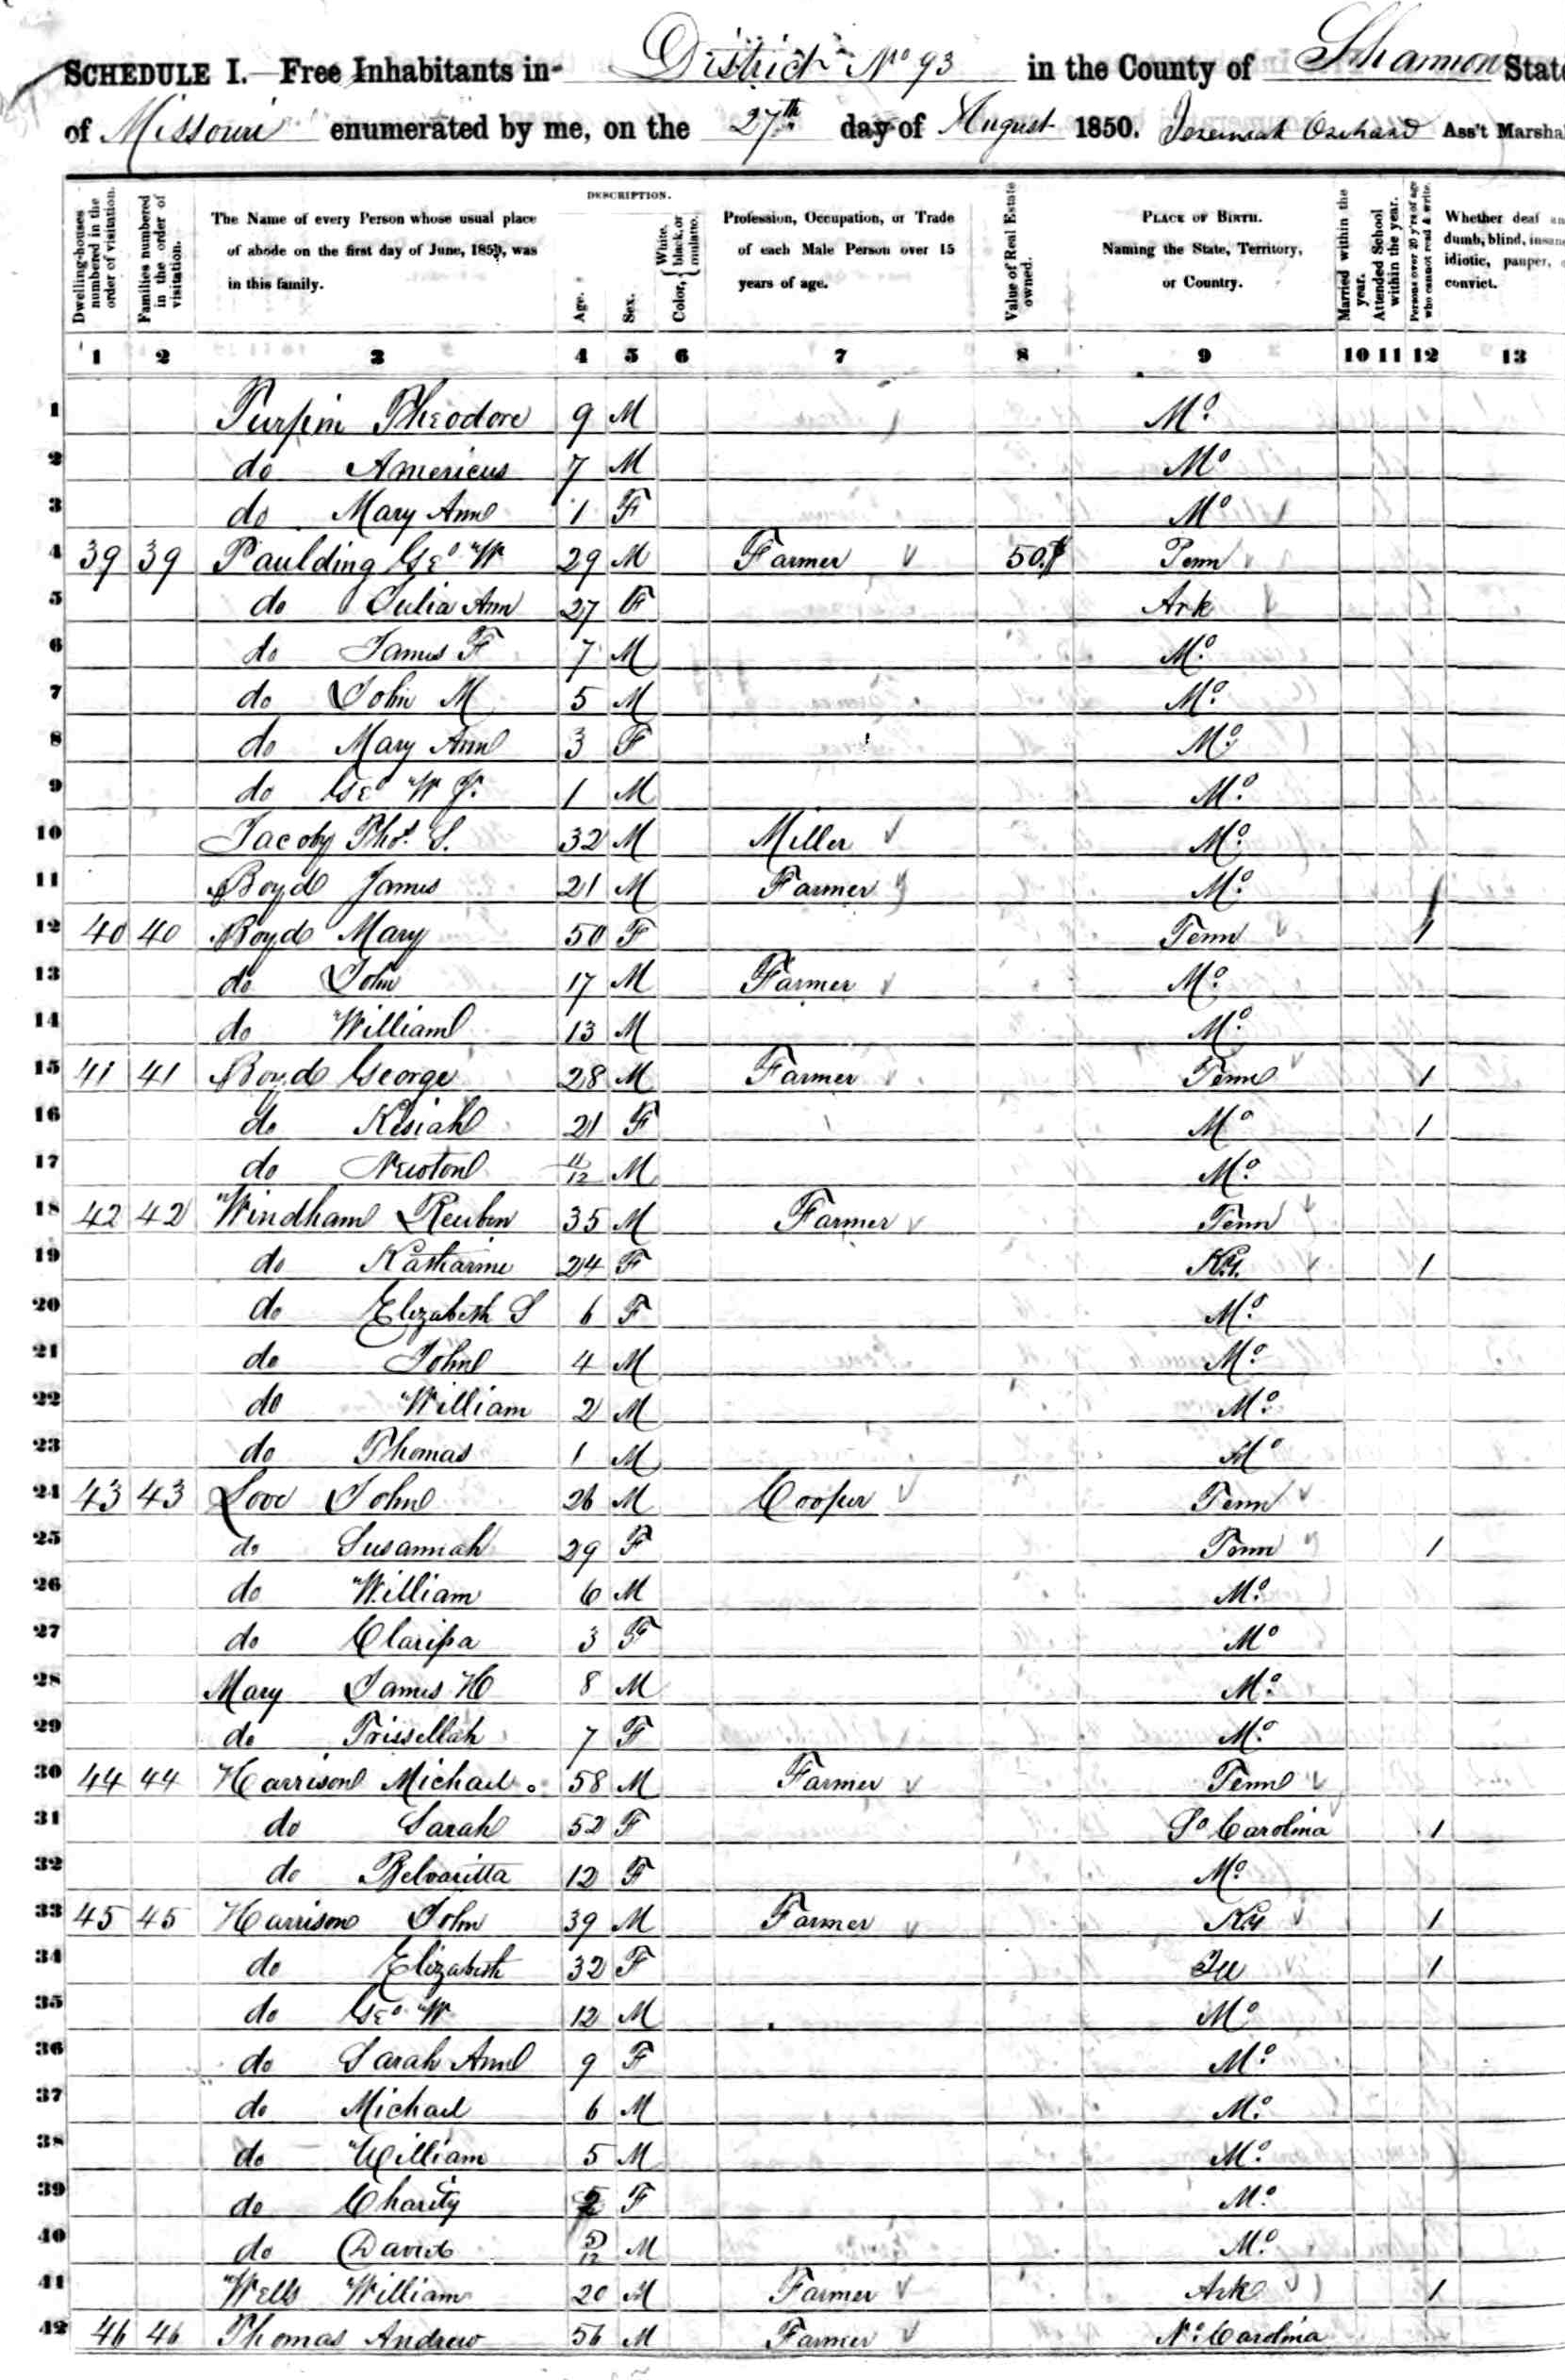 SCHEDULE I. Free Inhabitants in District No 93 in the County of Shannon State
of Missouri enumerated by me, on the 27th day of August 1850. Jeremiah Orchard Ass't Marshal
Dwelling-houses numbered in the order of visitation.
Families numbered in the order of visitation.
The Name of every Person whose usual place of abode on the first day of June, 1850, was in this family.
DESCRIPTION.
Age.
Sex.
Color, { White, black, or mulatto.
Profession, Occupation, or Trade of each Male Person over 15 years of age.
Value of Real Estate owned.
PLACE OF BIRTH. Naming the State, Territory, or Country.
Married within the year.
Attended School within the year.
Persons over 20 y'rs of age who cannot read & write.
Whether deaf an dumb, blind, insane idiotic, pauper, convict.
1 2 3 4 5 6 7 8 9 10 11 12 13
1 Turpin Theodore 9 M Mo
2 do Americus 7 M Mo
3 do Mary Ann 1 F Mo
4 39 39 Paulding Geo W 29 M Farmer 50 Penn
5 do Julia Ann 27 F Ark
6 do James F 7 M Mo
7 do John M 5 M Mo
8 do Mary Ann 3 F Mo
9 do Geo W J. 1 M Mo
10 Jacoby Thos. S. 32 M Miller Mo
11 Boyd James 21 M Farmer Mo /
12 40 40 Boyd Mary 50 F Tenn 1
13 do John 17 M Farmer Mo
14 do William 13 M Mo
15 41 41 Boyd George 28 M Farmer Tenn 1
16 do Kesiah 21 F Mo 1
17 do Newton 11/12 M Mo
18 42 42 Windham Reuben 35 M Farmer Tenn
19 do Katharine 24 F Ky. 1
20 do Elizabeth S 6 F Mo
21 do John 4 M Mo
22 do William 2 M Mo
23 do Thomas 1 M Mo
24 43 43 Love John 26 M Cooper Tenn
25 do Susannah 29 F Tenn 1
26 do William 6 M Mo
27 do Clarissa 3 F Mo
28 Mary James H 8 M Mo
29 do Prissellah 7 F Mo
30 44 44 Harrison Michael 58 M Farmer Tenn
31 do Sarah 52 F So Carolina 1
32 do Belvaritta 12 F Mo
33 45 45 Harrison John 39 M Farmer Ky 1
34 do Elizabeth 32 F Ill 1
35 do Geo W 12 M Mo
36 do Sarah Ann 9 F Mo
37 do Michael 6 M Mo
38 do William 5 M Mo
39 do Charity 2 F Mo
40 do David 5/12 M Mo
41 Wells William 20 M Farmer Ark 1
42 46 46 Thomas Andrew 56 M Farmer No Carolina